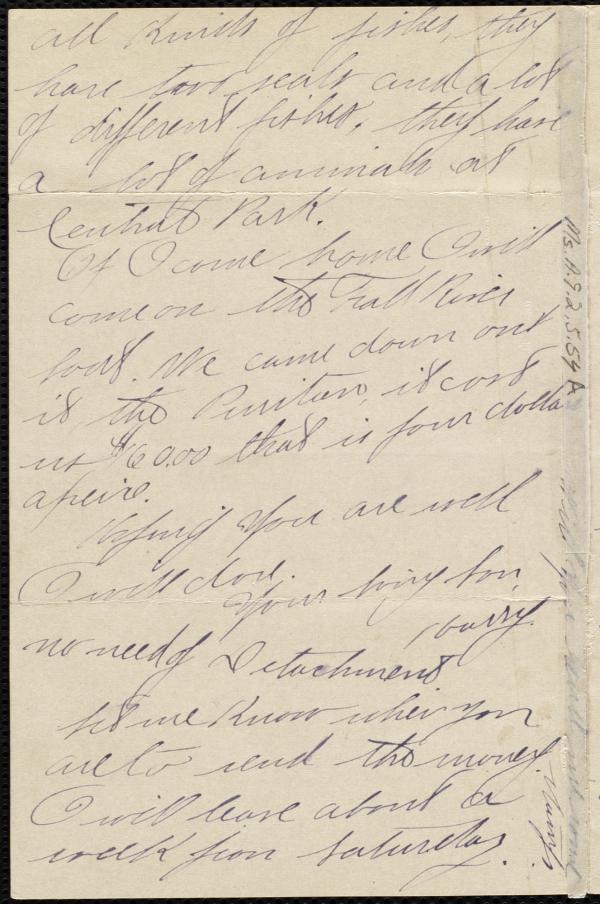 all kinds of fishes, they
have two seals and a lot
of different fishes. they have
a lot of animals at
Central Park.
If I come home I will
come on the Fall River
boat. We came down on
it, the Puritan, it cost
us $60.00 that is four dolla
apeice.
Hoping you are well
I will close.
Your loving son,
Harry
no need of Detachment
let me know when you
are to send the money
I will leave about a
week from Saturday.
Ms. A.9.2, 5.54 A